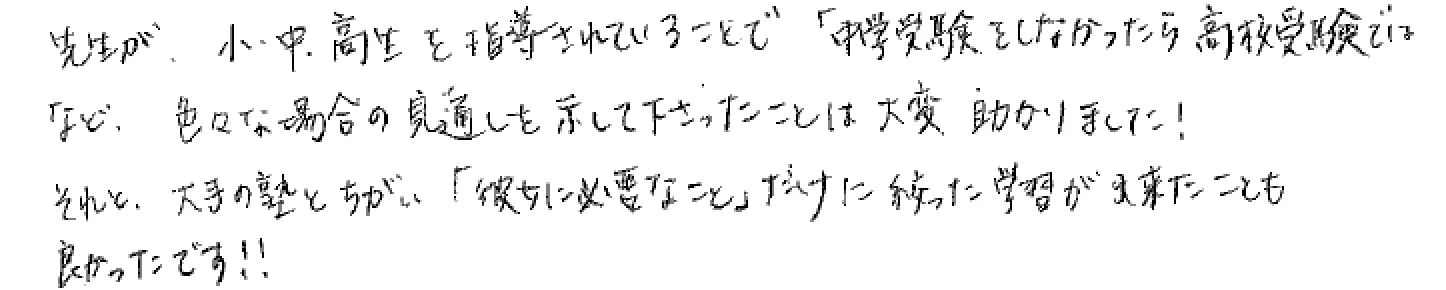 先生が、小・中・高生を指導されていることで「中学受験をしなかったら高校受験では
など、色々な場合の見通しを示して下さったことは大変助かりました!
それと、大手の塾とちがい「彼女に必要なこと」だけに絞った学習が出来たことも
良かったです!!